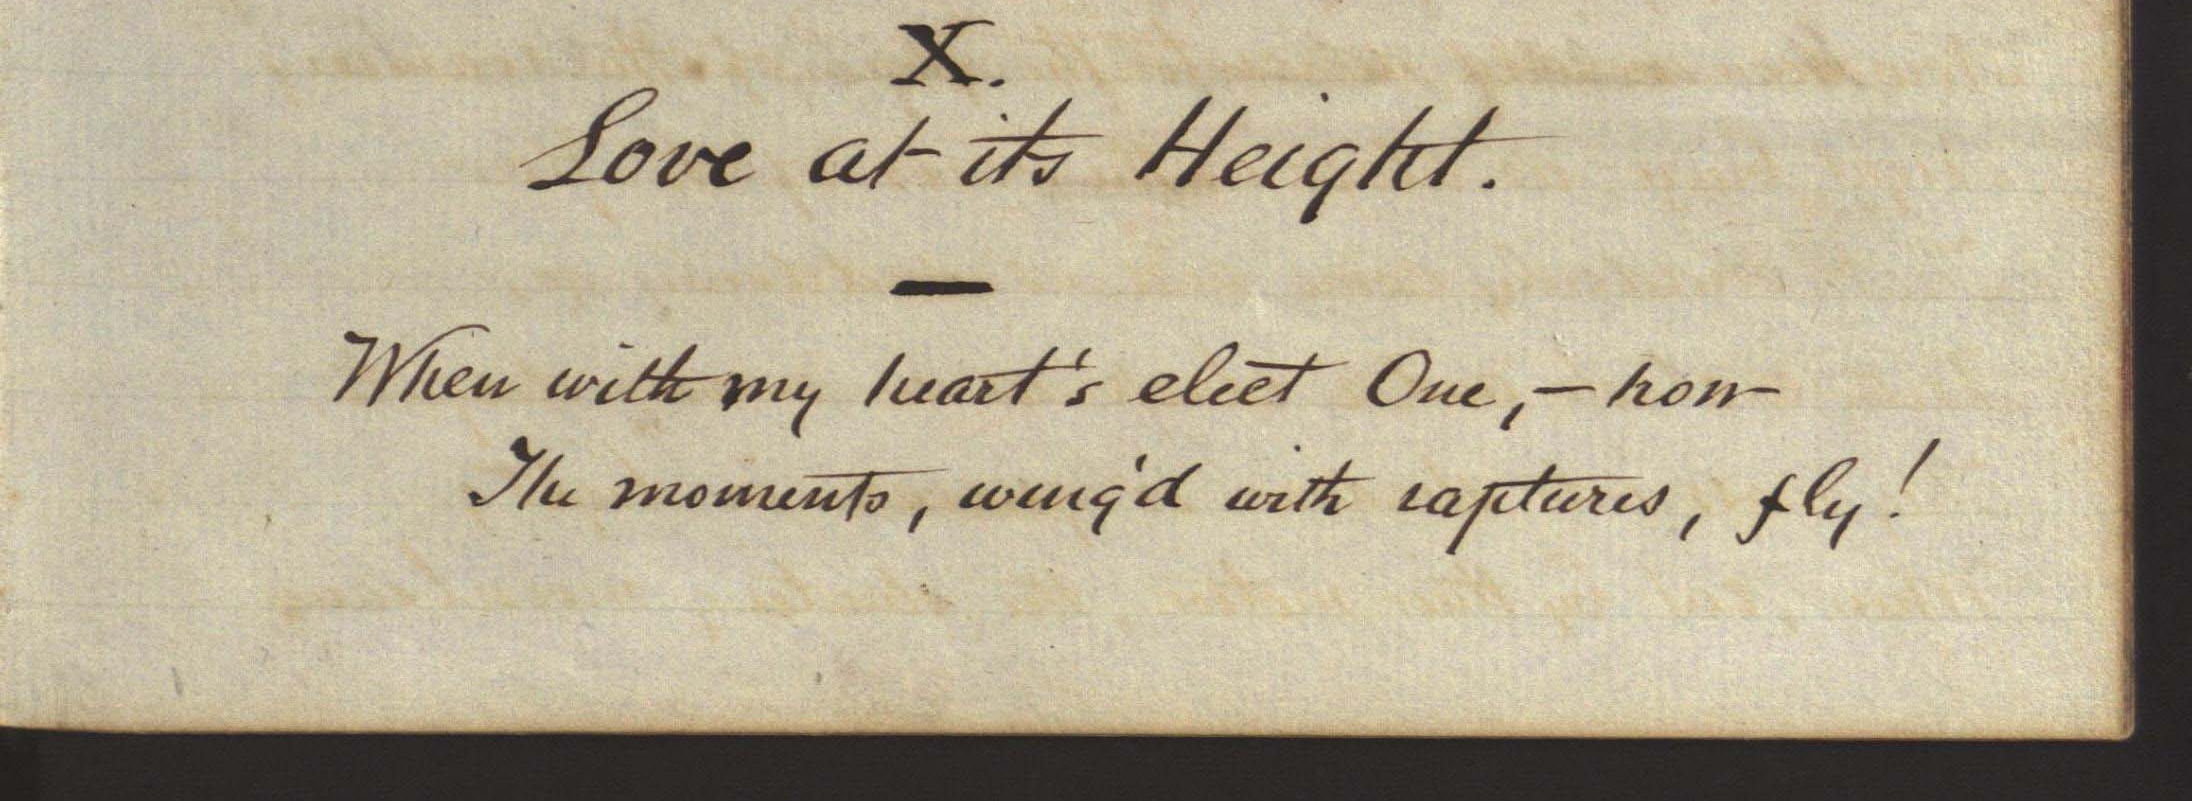 X.
Love at its Height.
—
When with my heart's elect One, — how
The moments, wing'd with raptures, fly!